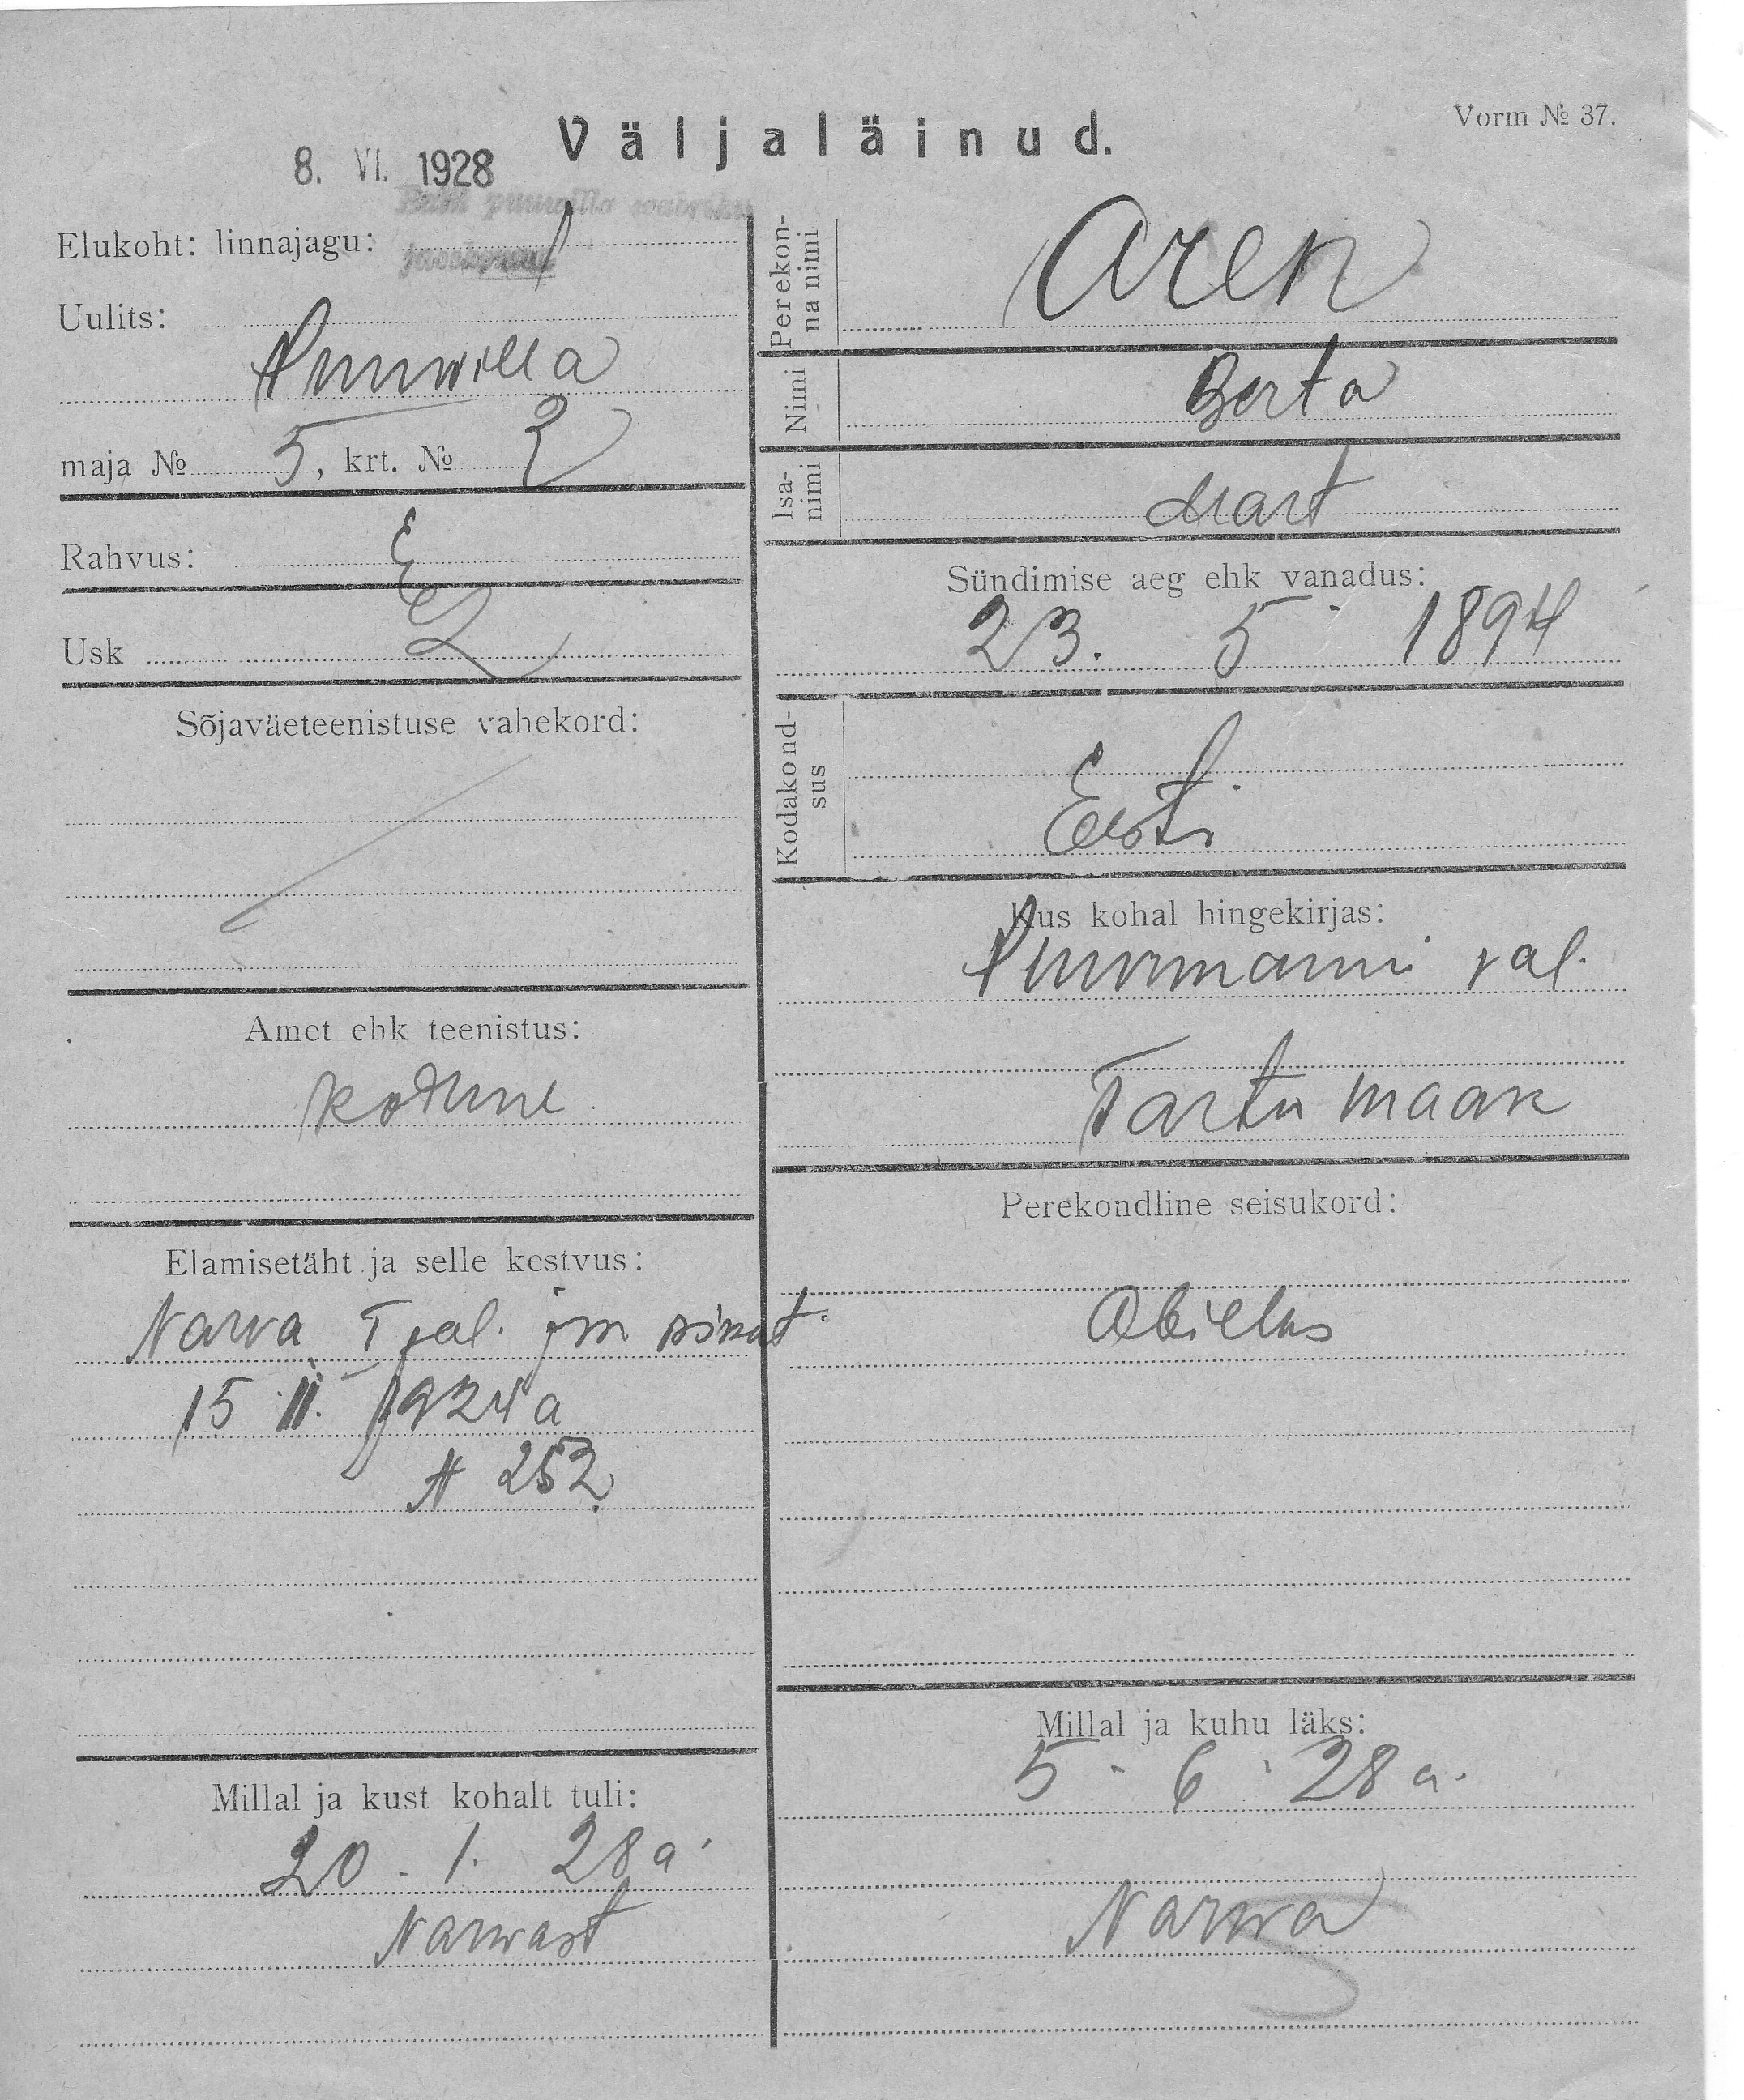 Vorm № 37.
Väljaläinud.
8. VI. 1928
Elukoht: linnajagu:
Uulits:
Puuwilla
maja № 5, krt. № 2
Rahvus: E
Usk L
Sõjaväeteenistuse vahekord:
Amet ehk teenistus:
kodune
Elamisetäht ja selle kestvus:
Narva I jal.
15 II. 1924 a
N 252
Millal ja kust kohalt tuli:
20. 1. 28 a.
Narwast
Perekon-
na nimi
Aren
Nimi
Berta
Isa-
nimi
Mart
Sündimise aeg ehk vanadus:
23. 5 1894
Kodakond-
sus
Eesti
Kus kohal hingekirjas:
Puurmanni val.
Tartu maak
Perekondline seisukord:
Abielus
Millal ja kuhu läks:
5. 6. 28 a.
Narwa